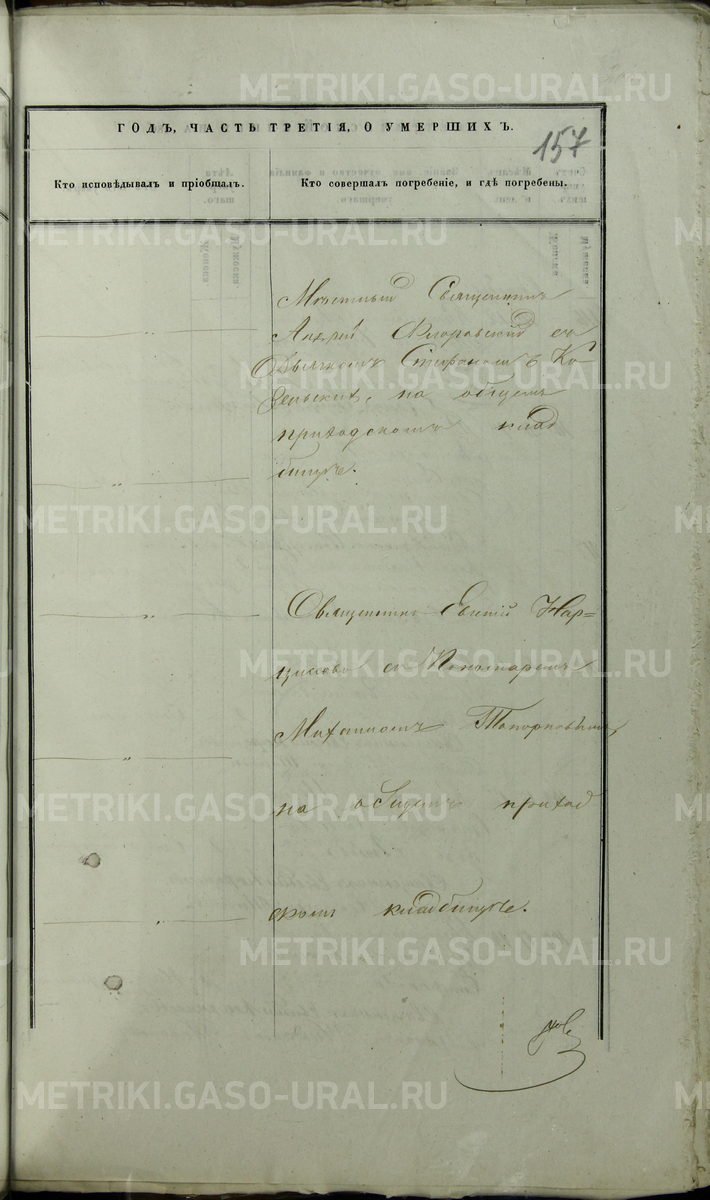 METRIKI.GASO-URAL.RU
ГОДЪ, ЧАСТЬ ТРЕТІЯ, О УМЕРШИХЪ.
157
Кто исповѣдывалъ и пріобщалъ.
Кто совершалъ погребеніе, и гдѣ погребены.
Мѣстный Священникъ
Андрей Флоровскій съ
Дьячкомъ Стефаномъ Ко
зельскихъ, на общемъ
приходскомъ клад
бищѣ.
Священникъ Евгеній Нар=
циссовъ съ Пономаремъ
Михаиломъ Топорковымъ
на общемъ приход
скомъ кладбищѣ.